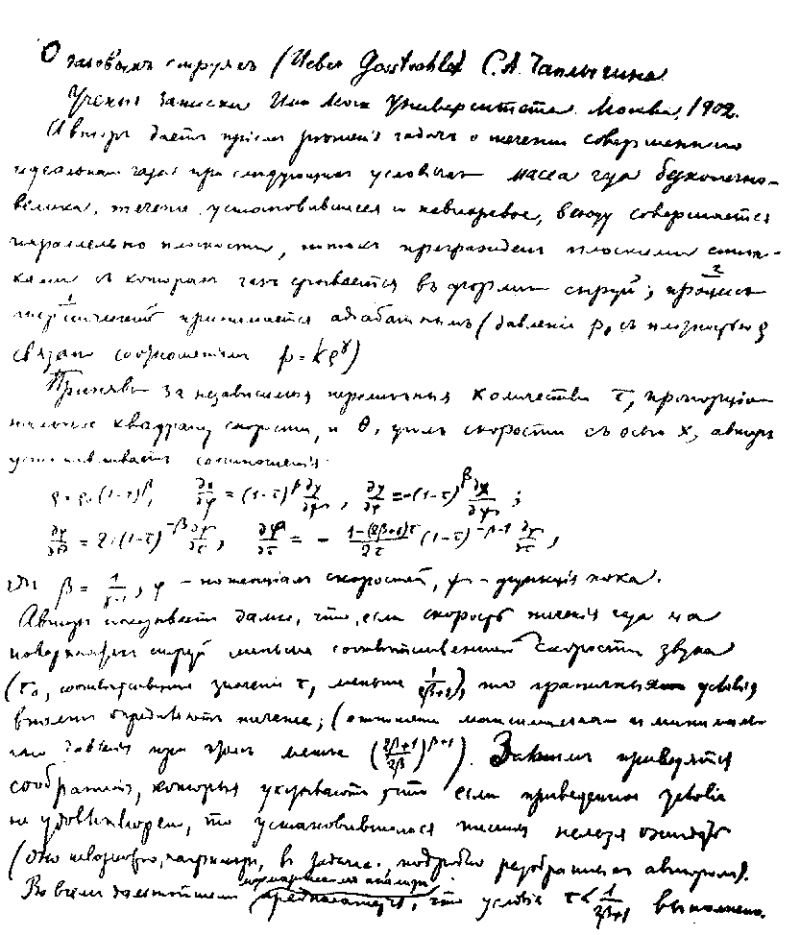 О газовыхъ струяхъ (Ueber Gasstrahlen) С.А. Чаплыгина.
Ученыя Записки Имп Моск Университета. Москва, 1902.
Авторъ даетъ пріемъ рѣшенія задачъ о теченіи совершеннаго
идеальнаго газа при слѣдующихъ условіяхъ масса газа безконечно-
велика, теченіе установившееся и невихревое, всюду совершается
параллельно плоскости, потокъ прегражденъ плоскими стѣн-
ками съ которыхъ газъ срывается въ формѣ струй; процессъ
термическій принимается адіабатнымъ (давленіе p, съ плотностью ρ
связано соотношеніемъ p = kρ^γ)
Принявъ за независимыя перемѣнныя количества τ, пропорціо-
нальное квадрату скорости, и θ, уголъ скорости съ осью X, авторъ
устанавливаетъ соотношенія
ρ = ρ₀(1-τ)^β, ∂x/∂φ = (1-τ)^β ∂y/∂ψ, ∂y/∂φ = -(1-τ)^β ∂x/∂ψ;
∂φ/∂θ = 2τ(1-τ)^-β ∂ψ/∂τ, ∂φ/∂τ = - 1-(2β+1)τ/2τ (1-τ)^-β-1 ∂ψ/∂θ,
гдѣ β = 1/γ-1, φ - потенціалъ скоростей, ψ - функція тока.
Авторъ показываетъ далѣе, что, если скорость теченія газа на
поверхности струй меньше соотвѣтственной скорости звука
(τ₀, соотвѣтственное значеніе τ, меньше 1/2β+1), то граничныя условія
вполнѣ опредѣляютъ теченіе; (отношеніе максимальнаго и минималь-
наго давленія при этомъ менѣе (2β+1/2β)^β+1). Затѣмъ приводятся
соображенія, которыя указываютъ, что если приведенное условіе
не удовлетворено, то установившагося теченія нельзя ожидать
(оно невозможно, напримѣръ, въ задачѣ подробно разобранной авторомъ).
Во всемъ дальнѣйшемъ предполагается, что условіе τ < 1/2β+1 выполнено.